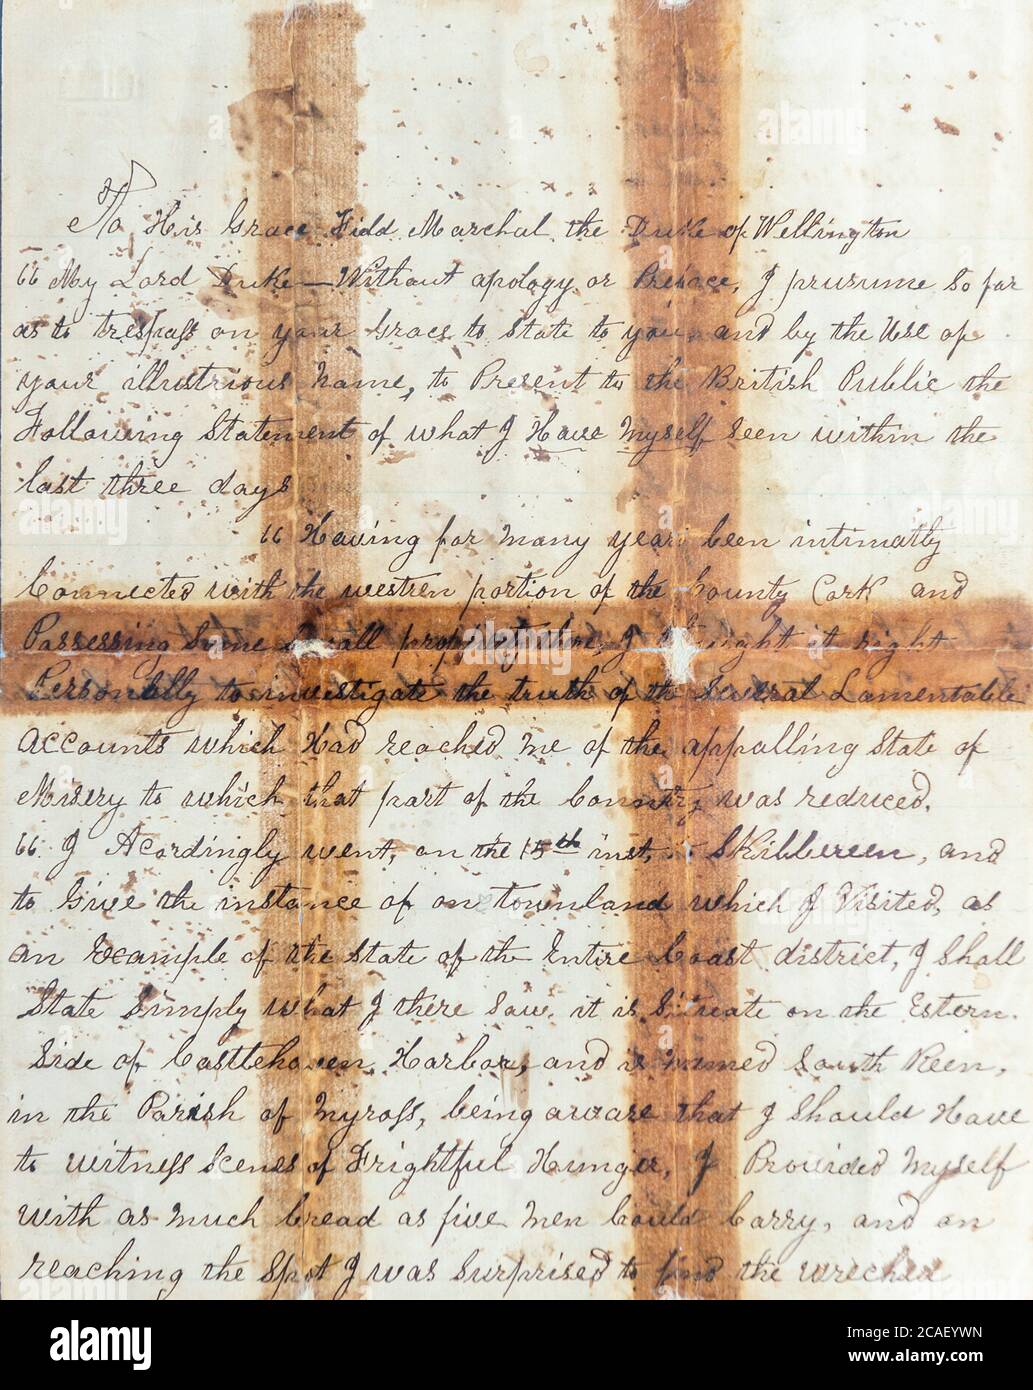 To His Grace Field Marchal, the Duke of Wellington
"My Lord Duke — Without apology or Preface, I prusume so far
as to trespass on your Graces to State to you, and by the Use of
your illustrious Name, to Present to the British Public the
Following Statement of what I Have Myself Seen within the
last three days
" Having for many years been intimatly
Connected with the westren portion of the County Cork and
Possessing Some Small property there, I thought it right
Personally to investigate the truth of the Several Lamentable
accounts which Had reached me of the appalling State of
Misery to which that part of the Country was reduced.
" I Acordingly went, on the 15th inst, to SKibbereen, and
to Give the instance of on townland which I Visited, as
an Example of the State of the Entire Coast district, I Shall
State Simply what I there Saw. it is Situate on the Estern.
Side of Castlehaven Harbor, and is named South Reen,
in the Parish of Myross, being aware that I Should Have
to witness Scenes of Frightful Hunger, I Provided Myself
with as much bread as five men Could Carry, and on
reaching the Spot I was Surprised to find the wreched
alamy
Image ID: 2CAEYWN
www.alamy.com